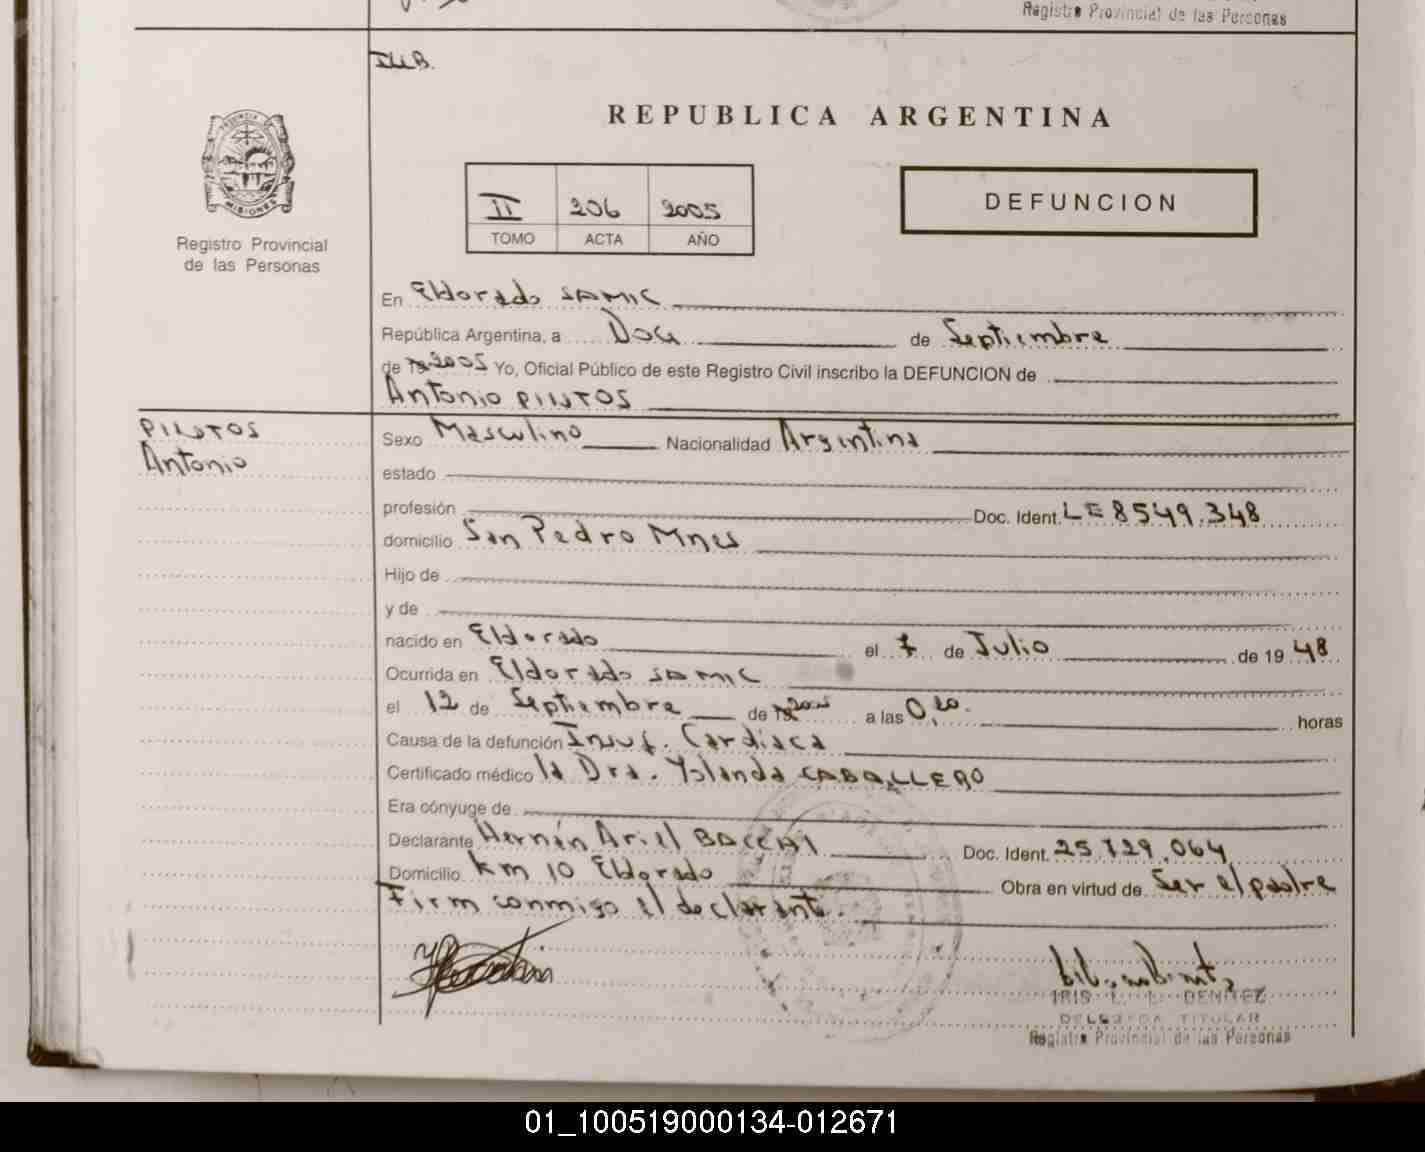 Registro Provincial de las Personas
REPUBLICA ARGENTINA
PROVINCIA DE
MISIONES
Registro Provincial
de las Personas
II 206 2005
TOMO ACTA AÑO
DEFUNCION
En Eldorado SAMIC
República Argentina, a Doce de Septiembre
de 2005 Yo, Oficial Público de este Registro Civil inscribo la DEFUNCION de
Antonio
Antonio
Sexo Masculino Nacionalidad Argentina
estado
profesión Doc. Ident. LE 8549.348
domicilio San Pedro Mnes
Hijo de
y de
nacido en Eldorado el 7 de Julio de 19 48
Ocurrida en Eldorado SAMIC
el 12 de Septiembre de 2005 a las 0,20. horas
Causa de la defunción Insuf. Cardiaca
Certificado médico la Dra. Yolanda CABALLERO
Era cónyuge de
Declarante Hernán Ariel Doc. Ident. 25.729.064
Domicilio km 10 Eldorado Obra en virtud de Ser el
Firm conmigo el declarante.
IRIS L. L. BENITEZ
DELEGADA TITULAR
Registro Provincial de las Personas
01_100519000134-012671